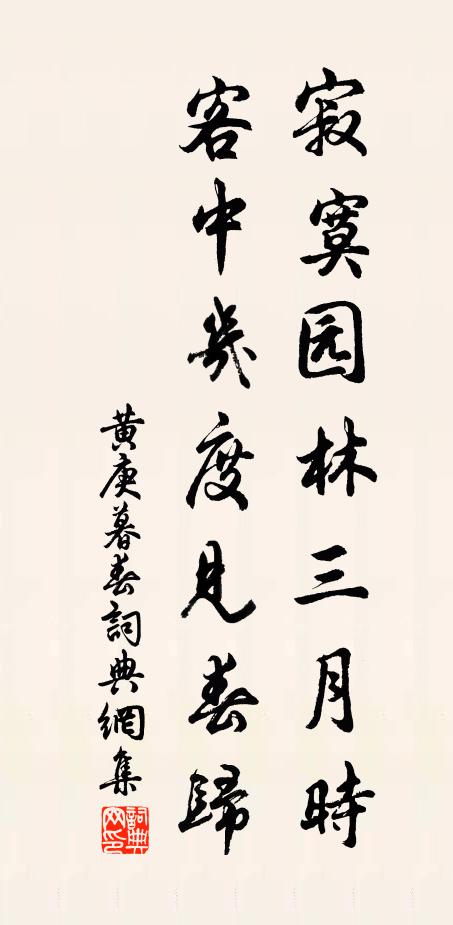 寂寞园林三月時
客中幾度見春歸
黄庚暮春詞典網集
詞典网印